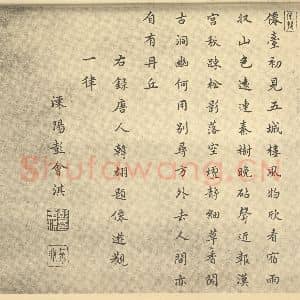 僊臺初見五城樓風物欣看宿雨
収山色遠連秦樹晚砧聲近報漢
宮秋疎松影落空壇靜細草香閒
古洞幽何用別尋方外去人間亦
自有丹丘
右錄唐人韓翃題僊遊觀
一律
溧陽彭會淇
Shufawang.cn